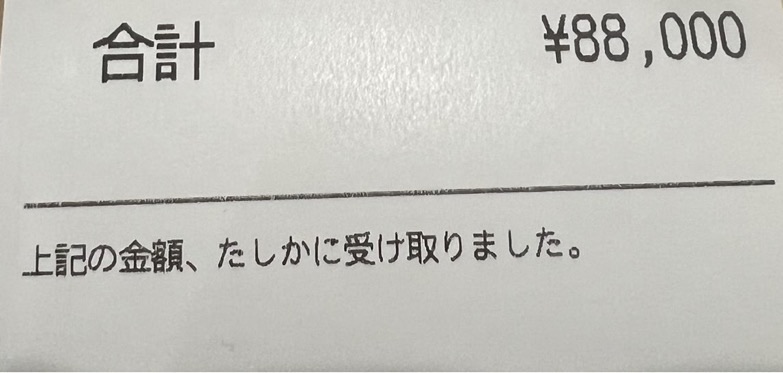 合計 ¥88,000
上記の金額、たしかに受け取りました。